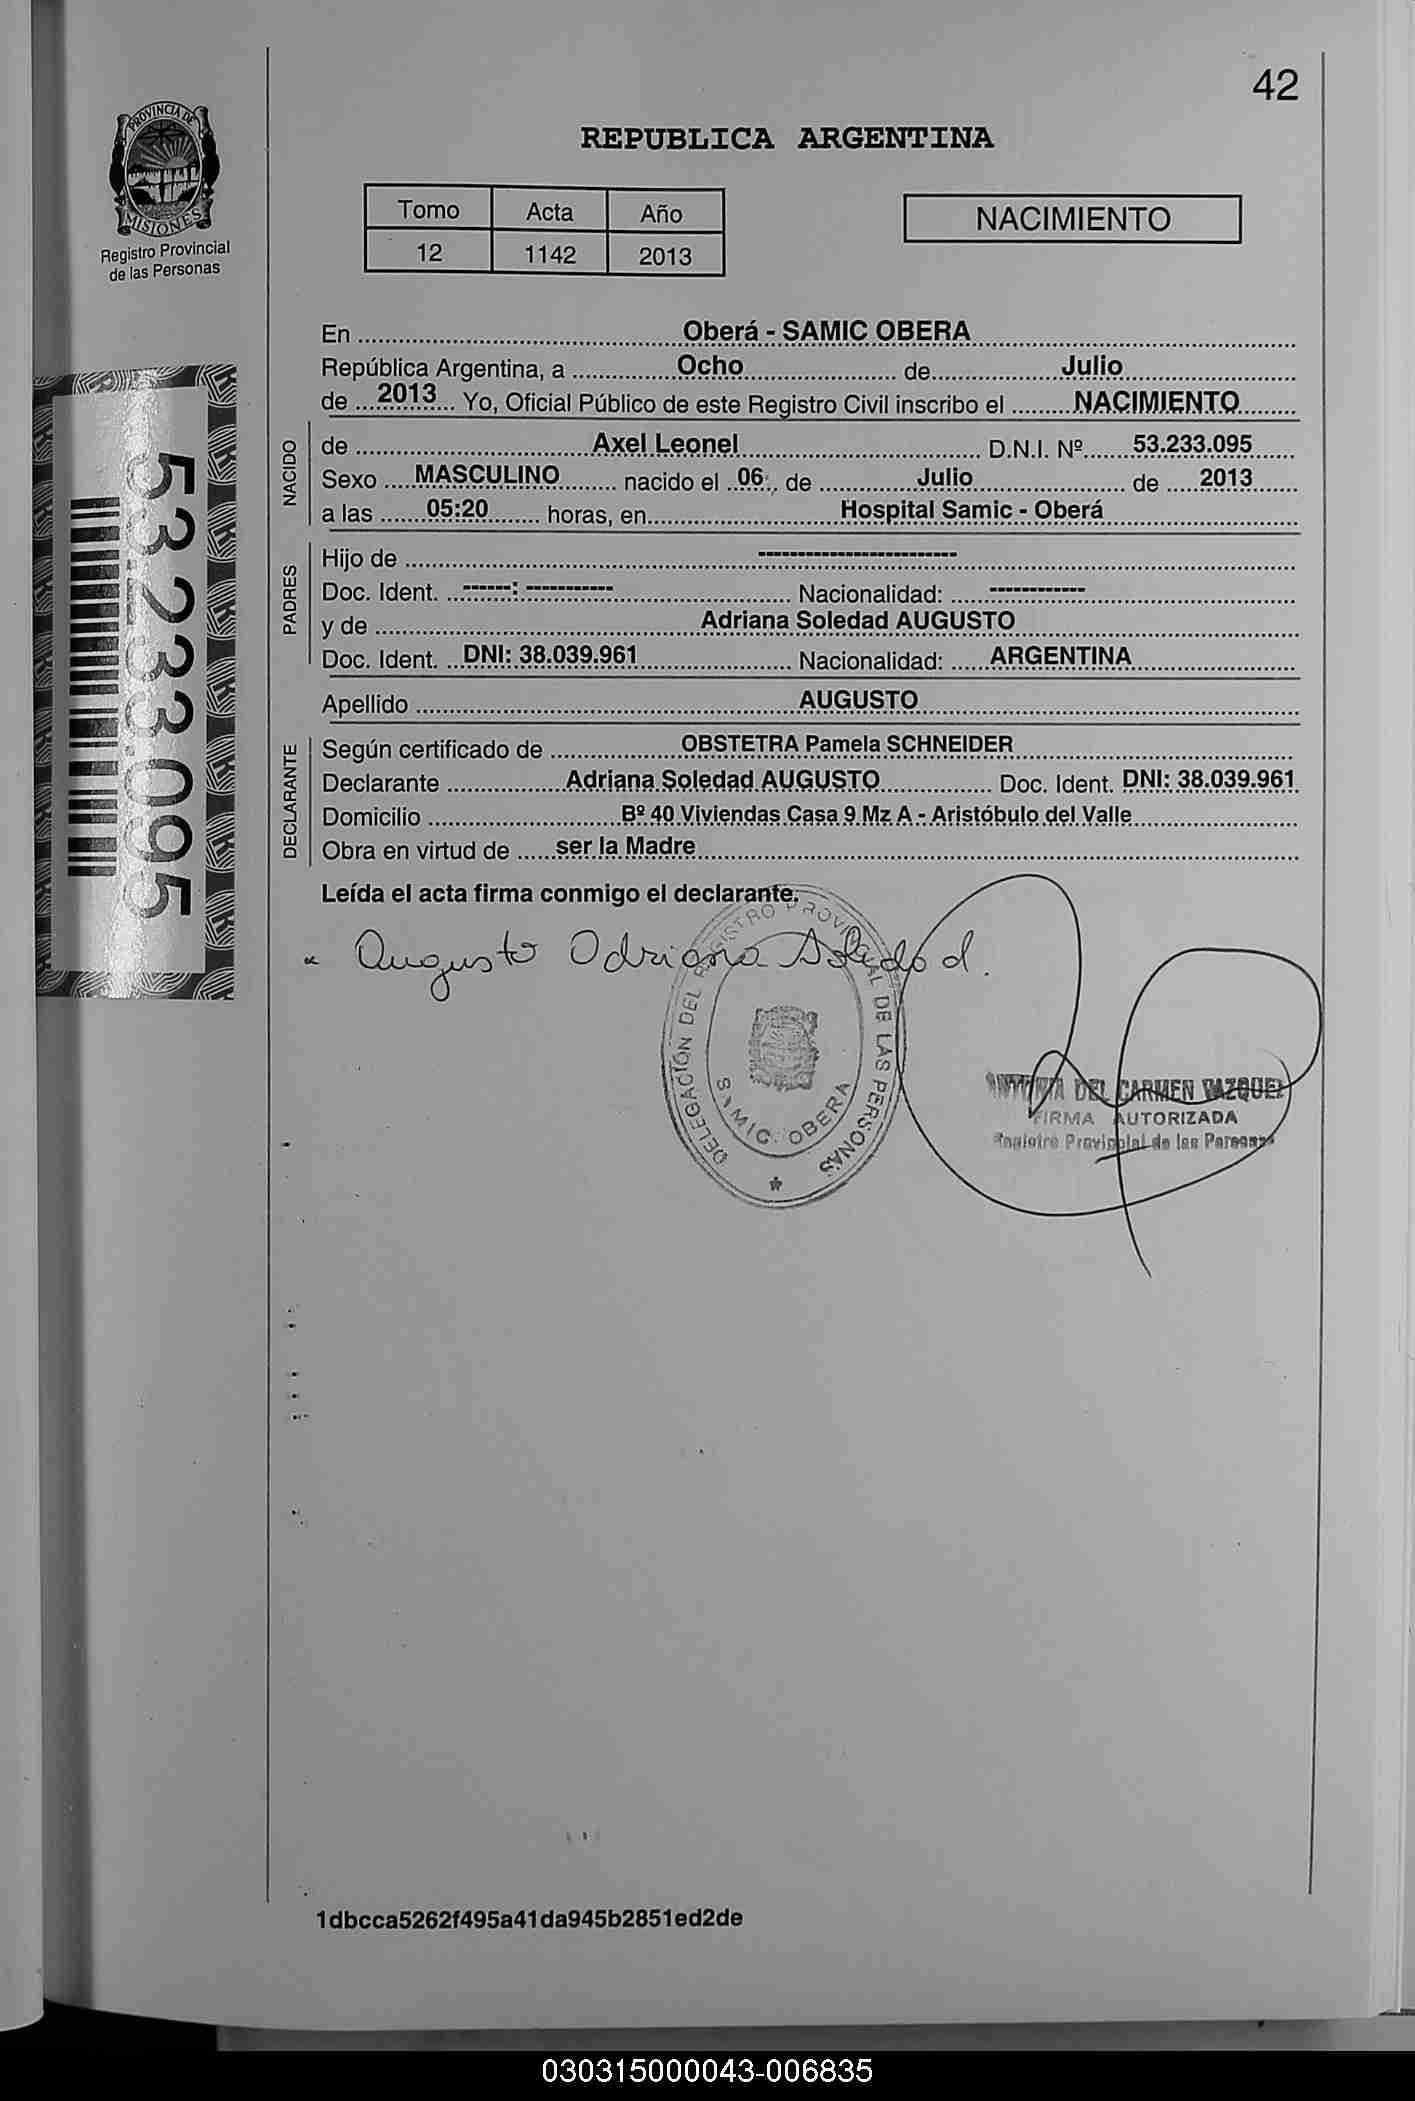 42
PROVINCIA DE
MISIONES
Registro Provincial
de las Personas
REPUBLICA ARGENTINA
Tomo Acta Año
12 1142 2013
NACIMIENTO
53.233.095
En Oberá - SAMIC OBERA
República Argentina, a Ocho de Julio
de 2013 Yo, Oficial Público de este Registro Civil inscribo el NACIMIENTO
NACIDO
de Axel Leonel D.N.I. Nº 53.233.095
Sexo MASCULINO nacido el 06 de Julio de 2013
a las 05:20 horas, en Hospital Samic - Oberá
PADRES
Hijo de -------------------------
Doc. Ident. ------: ----------- Nacionalidad: ------------
y de Adriana Soledad AUGUSTO
Doc. Ident. DNI: 38.039.961 Nacionalidad: ARGENTINA
Apellido AUGUSTO
DECLARANTE
Según certificado de OBSTETRA Pamela SCHNEIDER
Declarante Adriana Soledad AUGUSTO Doc. Ident. DNI: 38.039.961
Domicilio Bº 40 Viviendas Casa 9 Mz A - Aristóbulo del Valle
Obra en virtud de ser la Madre
Leída el acta firma conmigo el declarante.
Augusto Adriana Soledad.
DELEGACIÓN DEL REGISTRO PROVINCIAL DE LAS PERSONAS
SAMIC. OBERA
DEL CARMEN VAZQUEZ
FIRMA AUTORIZADA
Registro Provincial de las Personas
1dbcca5262f495a41da945b2851ed2de
030315000043-006835